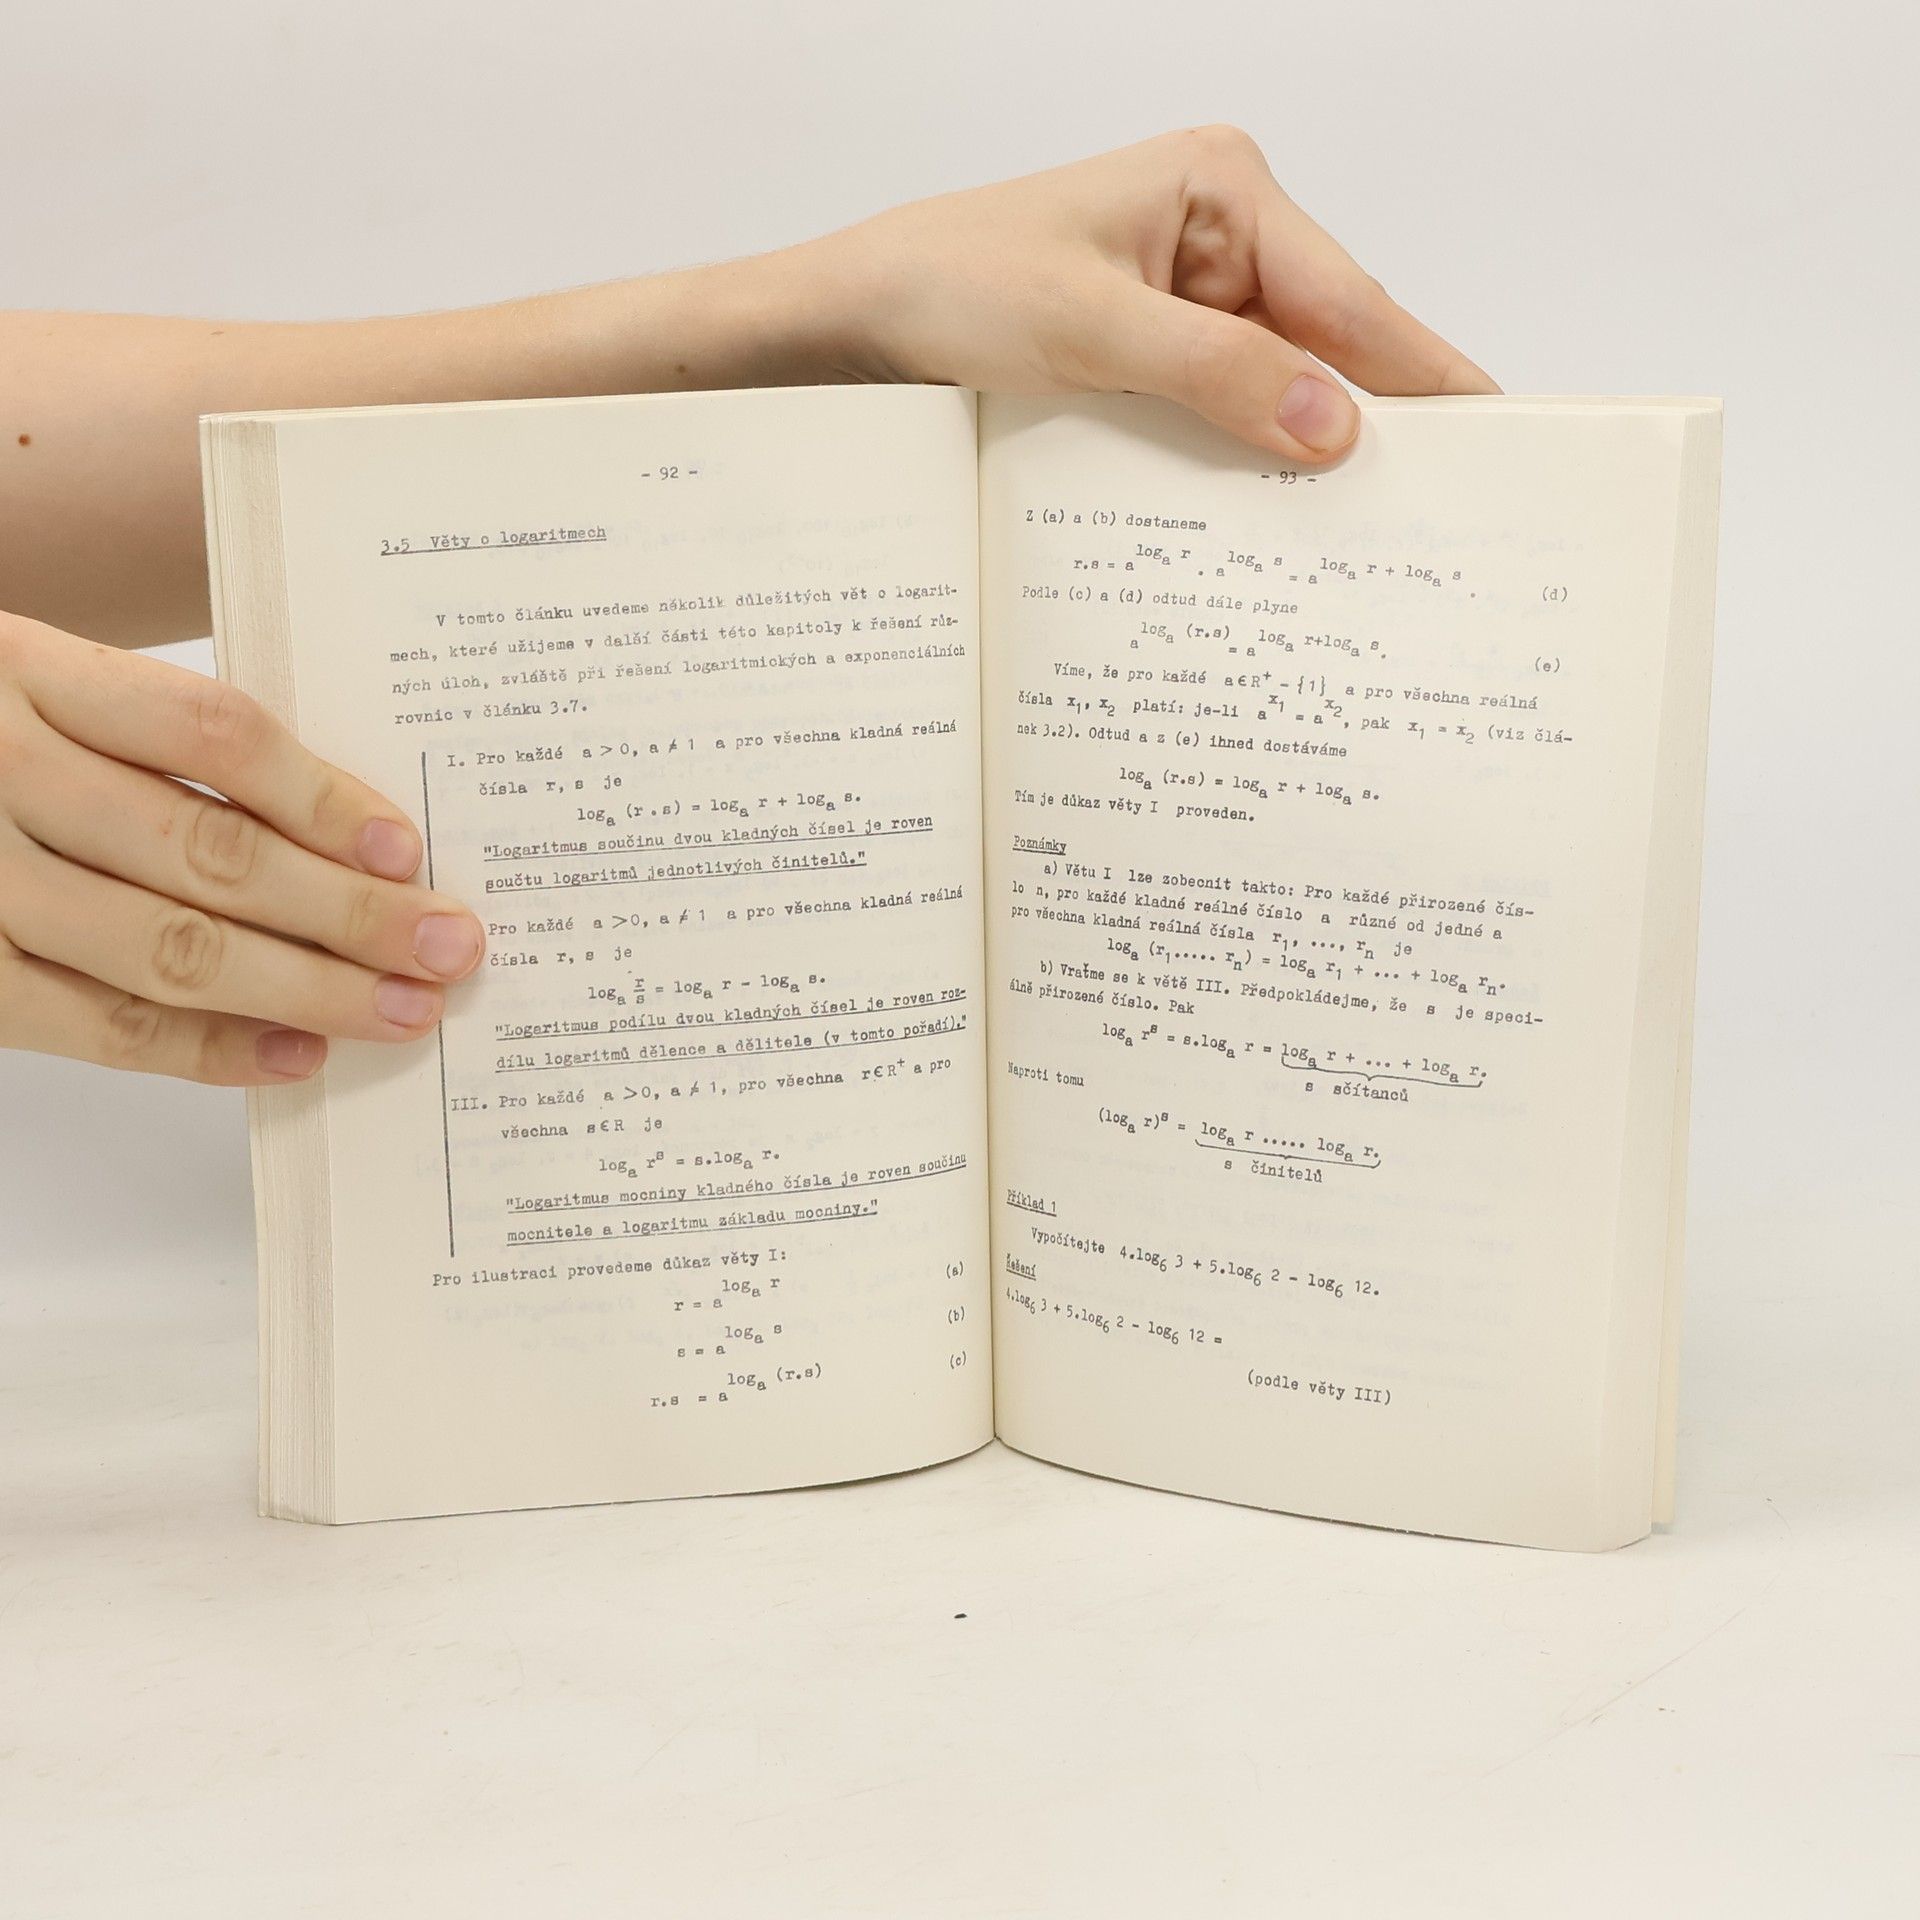 - 92 -
3.5 Věty o logaritmech
V tomto článku uvedeme několik důležitých vět o logarit-
mech, které užijeme v další části této kapitoly k řešení růz-
ných úloh, zvláště při řešení logaritmických a exponenciálních
rovnic v článku 3.7.
I. Pro každé a > 0, a ≠ 1 a pro všechna kladná reálná
čísla r, s je
logₐ (r . s) = logₐ r + logₐ s.
"Logaritmus součinu dvou kladných čísel je roven
součtu logaritmů jednotlivých činitelů."
Pro každé a > 0, a ≠ 1 a pro všechna kladná reálná
čísla r, s je
logₐ r/s = logₐ r - logₐ s.
"Logaritmus podílu dvou kladných čísel je roven roz-
dílu logaritmů dělence a dělitele (v tomto pořadí)."
III. Pro každé a > 0, a ≠ 1, pro všechna r ∈ R⁺ a pro
všechna s ∈ R je
logₐ rˢ = s.logₐ r.
"Logaritmus mocniny kladného čísla je roven součinu
mocnitele a logaritmu základu mocniny."
Pro ilustraci provedeme důkaz věty I:
r = a^(logₐ r) (a)
s = a^(logₐ s) (b)
r.s = a^(logₐ (r.s)) (c)
- 93 -
Z (a) a (b) dostaneme
r.s = a^(logₐ r) . a^(logₐ s) = a^(logₐ r + logₐ s) . (d)
Podle (c) a (d) odtud dále plyne
a^(logₐ (r.s)) = a^(logₐ r+logₐ s). (e)
Víme, že pro každé a ∈ R⁺ - {1} a pro všechna reálná
čísla x₁, x₂ platí: je-li a^(x₁) = a^(x₂), pak x₁ = x₂ (viz člá-
nek 3.2). Odtud a z (e) ihned dostáváme
logₐ (r.s) = logₐ r + logₐ s.
Tím je důkaz věty I proveden.
Poznámky
a) Větu I lze zobecnit takto: Pro každé přirozené čís-
lo n, pro každé kladné reálné číslo a různé od jedné a
pro všechna kladná reálná čísla r₁, ..., rₙ je
logₐ (r₁..... rₙ) = logₐ r₁ + ... + logₐ rₙ.
b) Vraťme se k větě III. Předpokládejme, že s je speci-
álně přirozené číslo. Pak
logₐ rˢ = s.logₐ r = logₐ r + ... + logₐ r.
s sčítanců
Naproti tomu
(logₐ r)ˢ = logₐ r ..... logₐ r.
s činitelů
Příklad 1
Vypočítejte 4.log₆ 3 + 5.log₆ 2 - log₆ 12.
Řešení
4.log₆ 3 + 5.log₆ 2 - log₆ 12 =
(podle věty III)